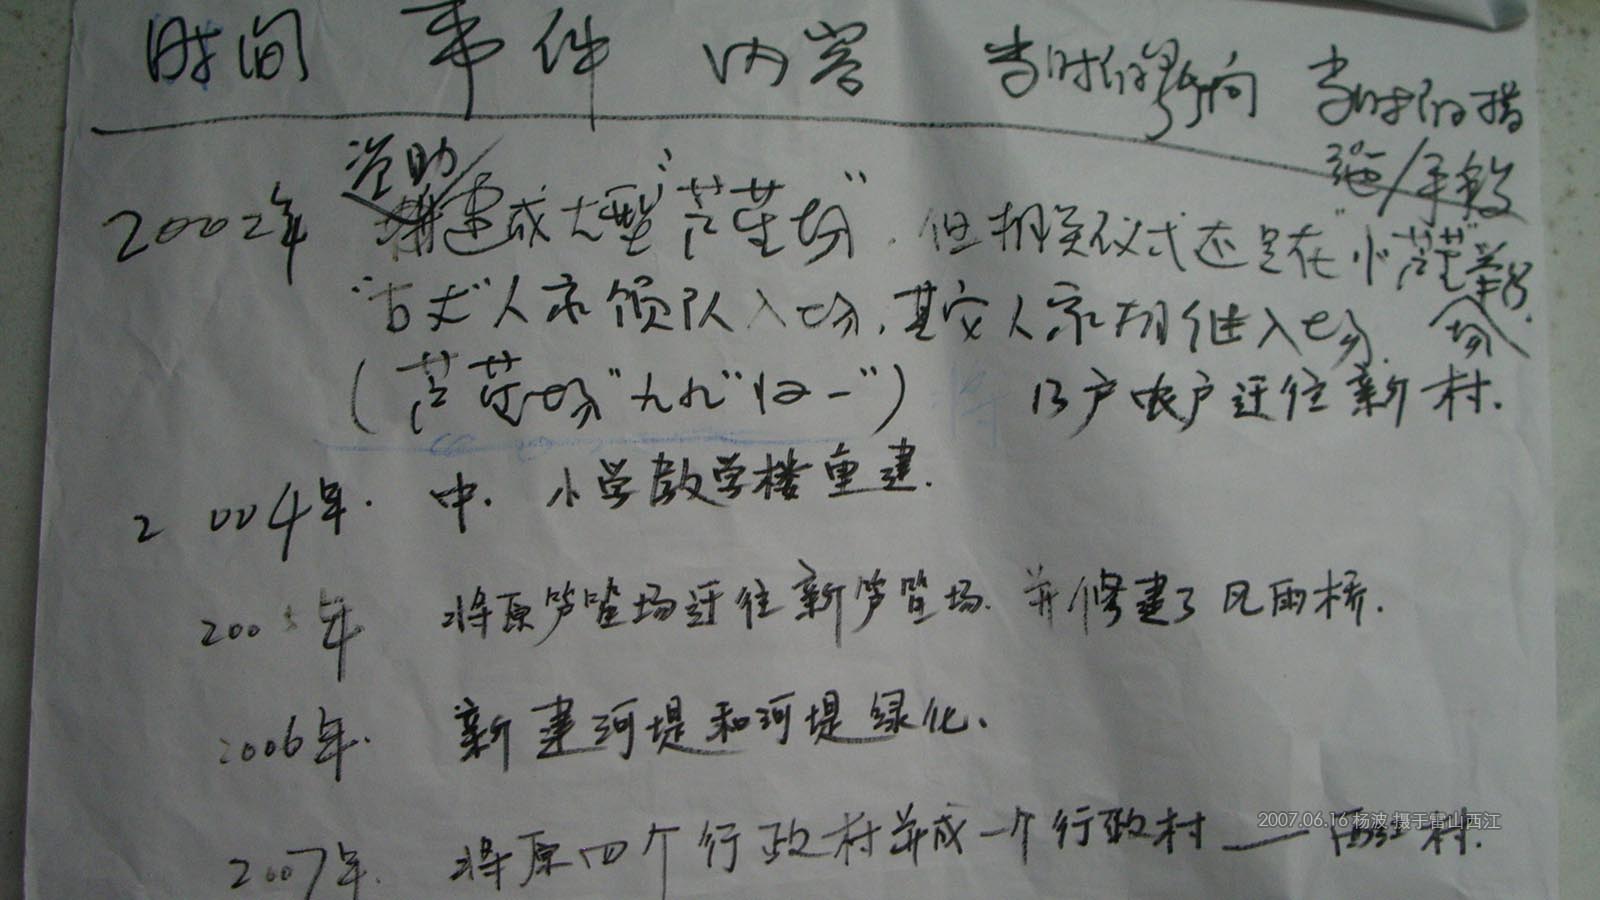 时间 事件 内容 当时的影响 当时的措施/手段
资助
2002年 建成大型"芦笙场",但相关仪式还是在"小芦笙场"举行.
"古丈"人家领队入场,其它人家相继入场.
(芦笙场"九九"归一") 13户农户迁往新村.
2004年. 中.小学教学楼重建.
200 年 将原芦笙场迁往新芦笙场.并修建了风雨桥.
2006年. 新建河堤和河堤绿化.
2007.06.16 杨波 摄于雷山西江
2007年. 将原四个行政村并成一个行政村——西江村.